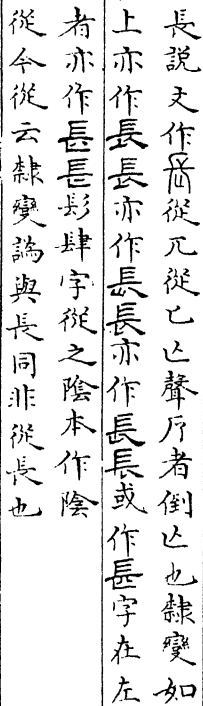 長說文作𠑷從兀從匕亾聲𠂆者倒亾也隸變如
上亦作長長亦作長長亦作長長或作镸字在左
者亦作镸镸髟肆字從之陰本作陰
從今從云隸變譌與長同非從長也